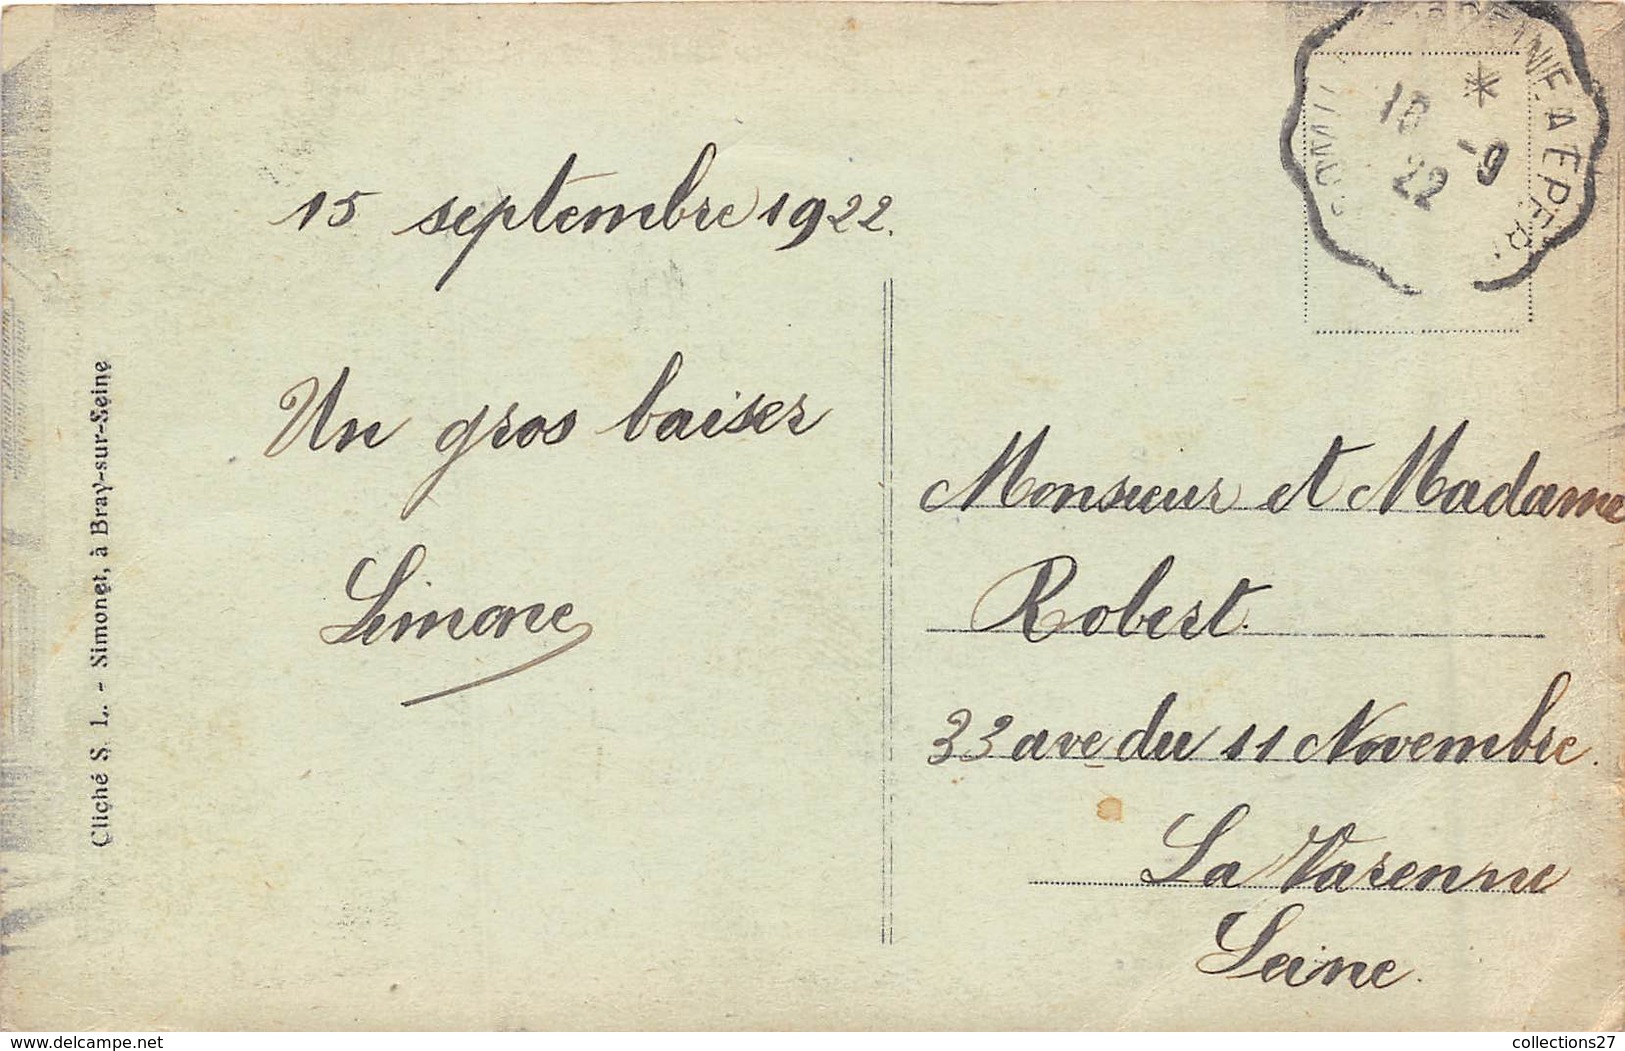 15 septembre 1922.
Un gros baiser
Simone
Monsieur et Madame
Robert.
33 ave du 11 Novembre.
La Varenne
Seine.
Cliché S. L. - Simonet, à Bray-sur-Seine
A EPER
22 -9
www.delcampe.net
collections27